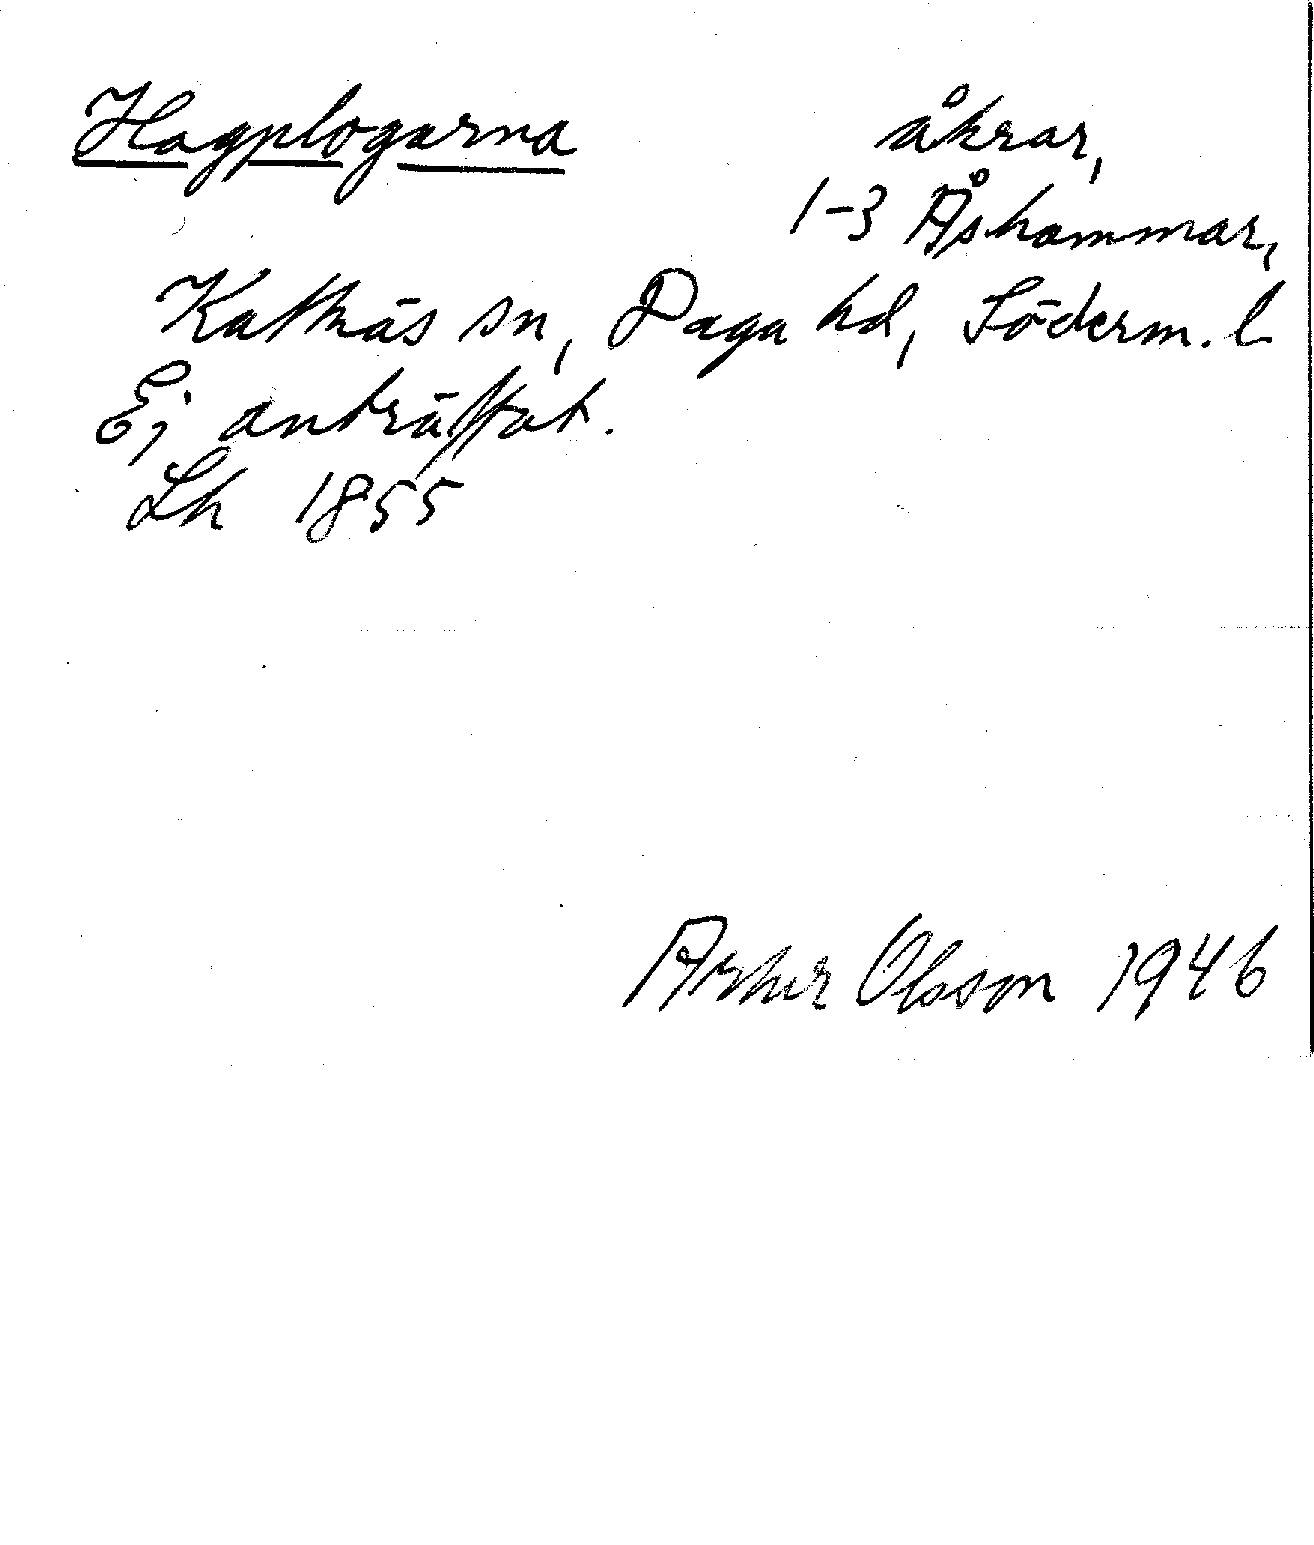 Hagplogarna
åkrar,
1-3 Åshammar,
Kattnäs sn, Daga hd, Söderm. l
Ej anträffat.
Lh 1855
Arthur Olsson 1946